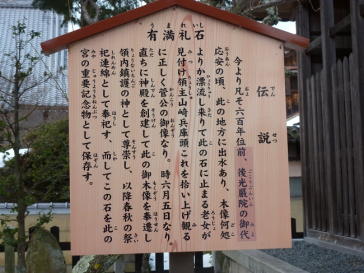 有満札石
伝説
今より凡そ六百年位前、後光厳院の御代
応安の頃、此の地方に出水あり、木像何処
よりか漂流し来りて此の石に止まる老女が
見付け領主山崎兵庫頭これを拾い上げ観る
に正しく菅公の御像なり。時六月五日なり、
直ちに神殿を創建して此の御木像を奉遷し
領内鎮護の神として尊崇し、以降春秋の祭
祀連綿として奉祀す、而してこの石を此の
宮の重要記念物として保存す。